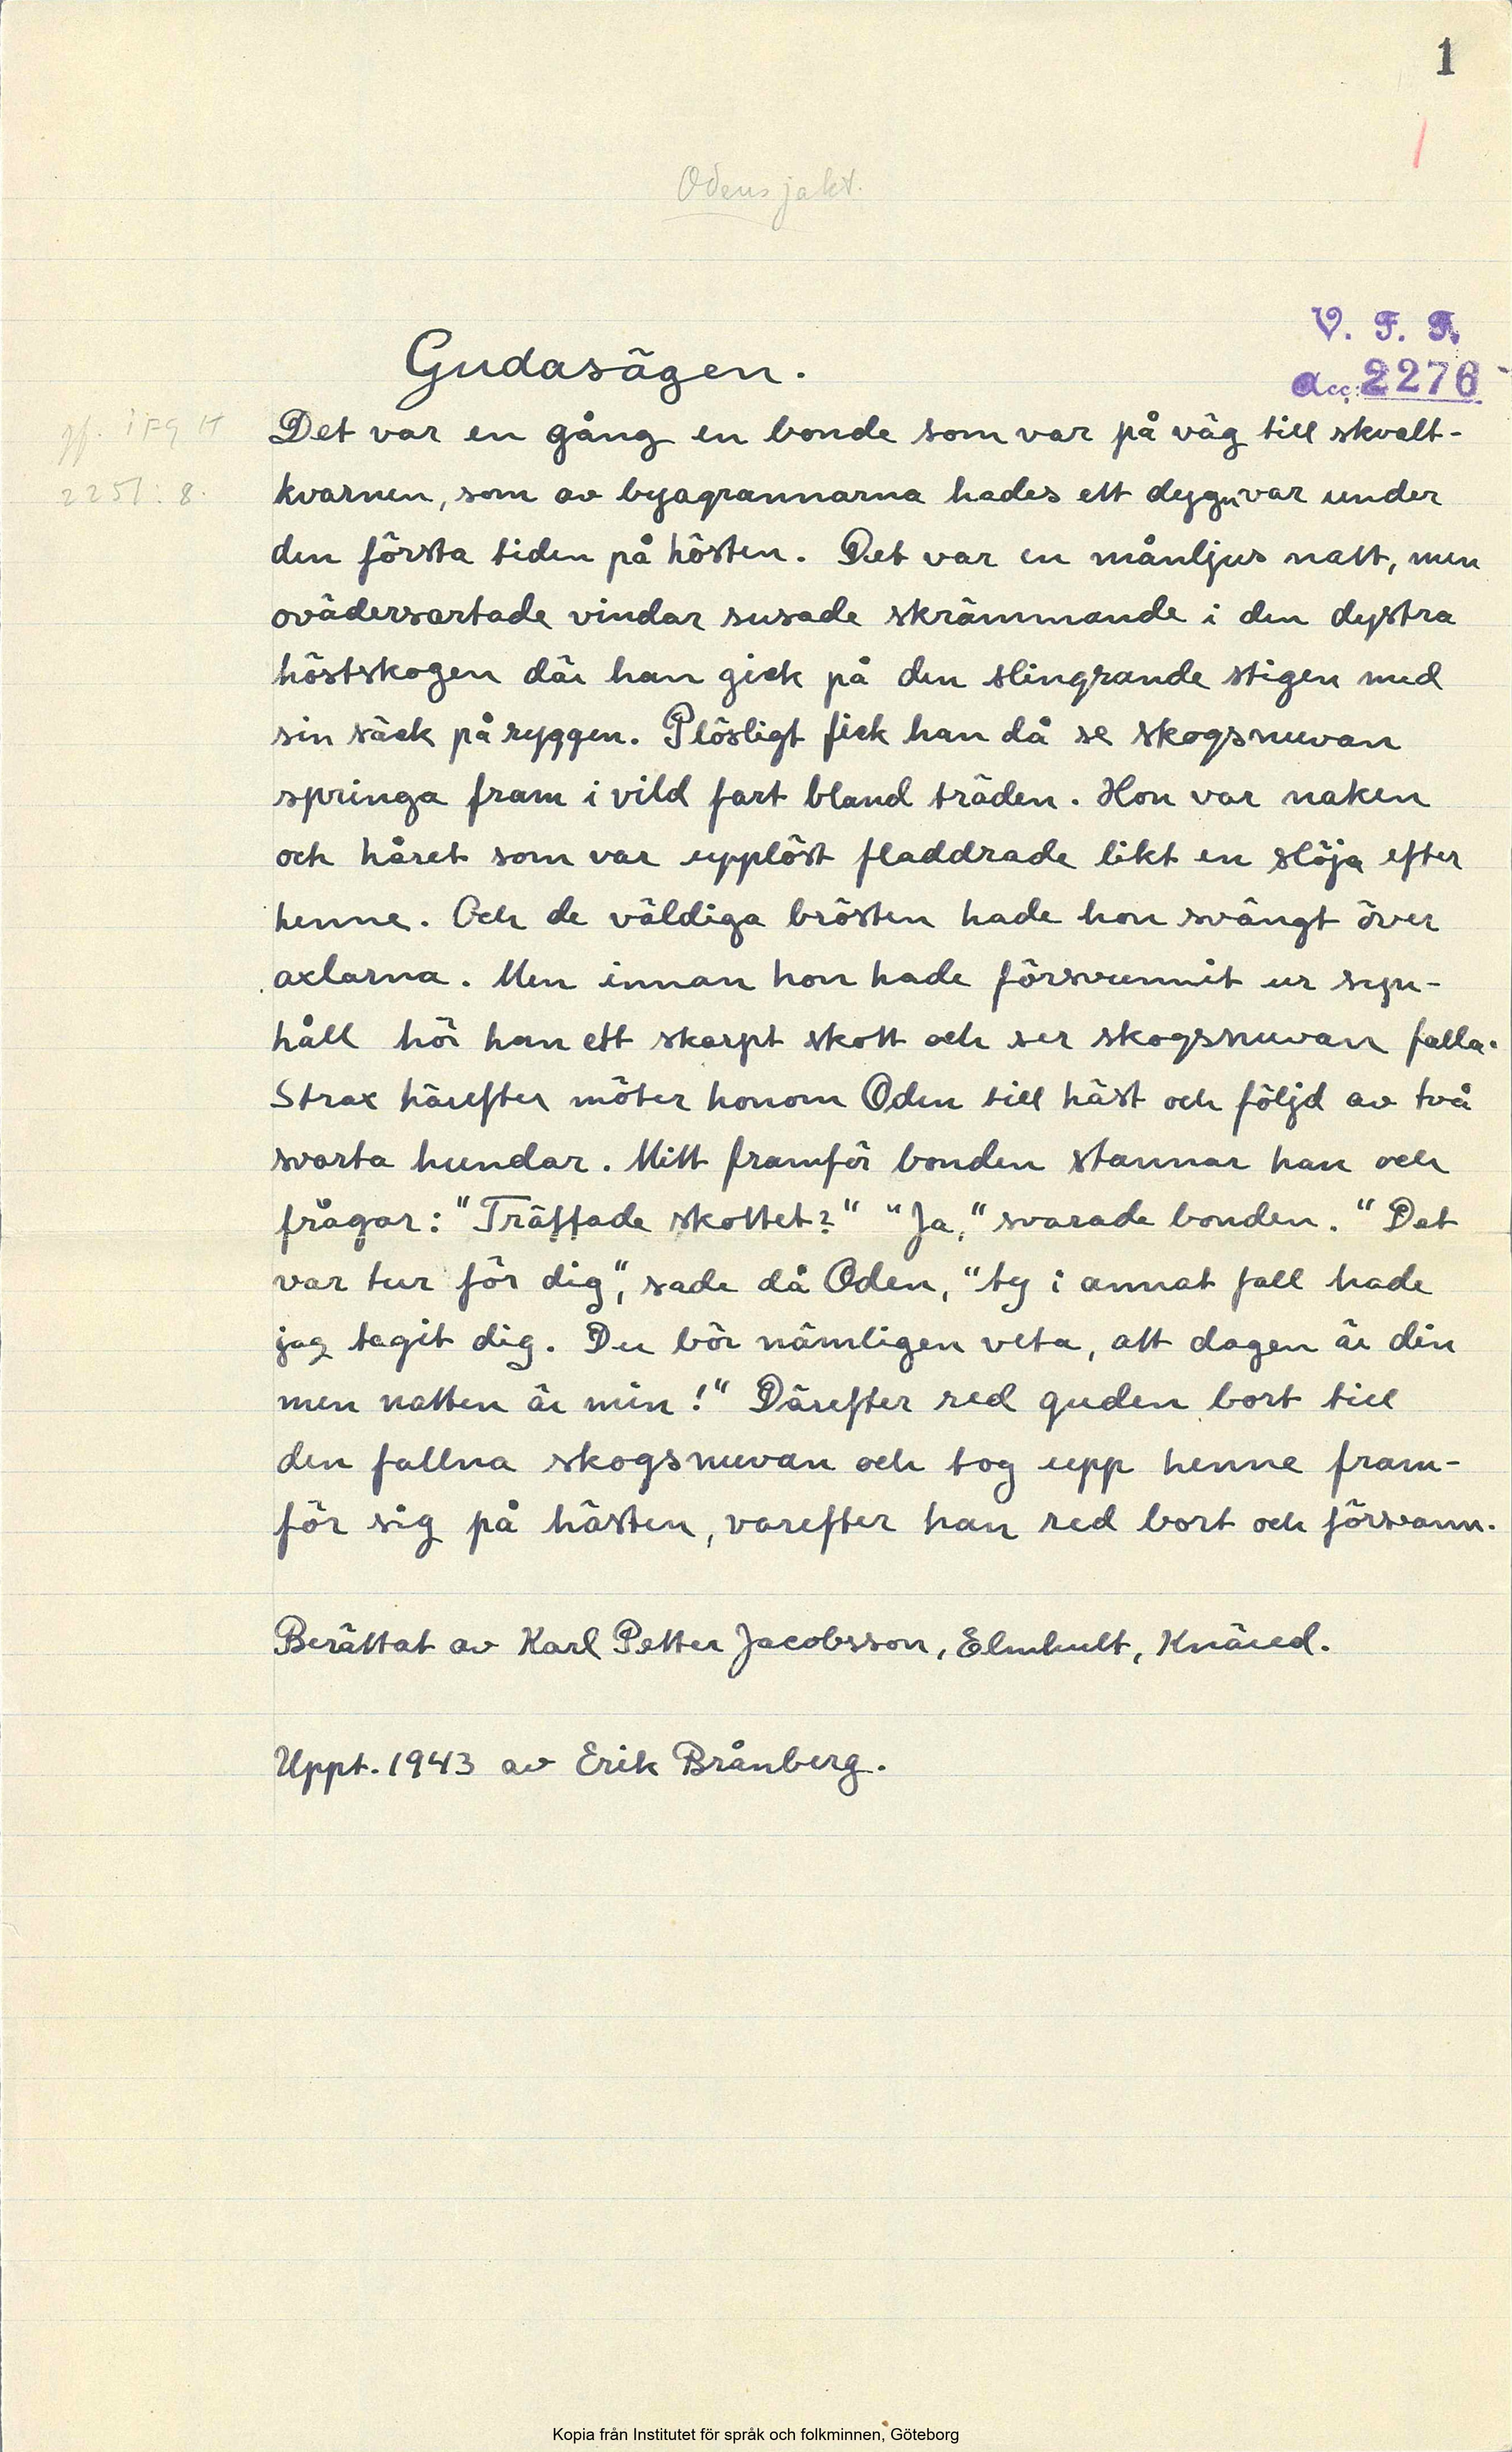 1
Odens jakt.
V. F. F.
Acc. 2276
Gudasägen.
Det var en gång en bonde som var på väg till skvalt-
2251:8.
kvarnen, som av byagrannarna hades ett dygn var under
den första tiden på hösten. Det var en månljus natt, men
ovädersartade vindar susade skrämmande i den dystra
höstskogen där han gick på den slingrande stigen med
sin säck på ryggen. Plösligt fick han då se skogsnuvan
springa fram i vild fart bland träden. Hon var naken
och håret som var upplöst fladdrade likt en slöja efter
henne. Och de väldiga brösten hade hon svängt över
axlarna. Men innan hon hade försvunnit ur syn-
håll hör han ett skarpt skott och ser skogsnuvan falla.
Strax härefter möter honom Oden till häst och följd av två
svarta hundar. Mitt framför bonden stannar han och
frågar: "Träffade skottet?" "Ja," svarade bonden. "Det
var tur för dig", sade då Oden, "ty i annat fall hade
jag tagit dig. Du bör nämligen veta, att dagen är din
men natten är min!" Därefter red guden bort till
den fallna skogsnuvan och tog upp henne fram-
för sig på hästen, varefter han red bort och försvann.
Berättat av Karl Petter Jacobsson, Elmhult, Knäred.
Uppt. 1943 av Erik Brånberg.
Kopia från Institutet för språk och folkminnen, Göteborg